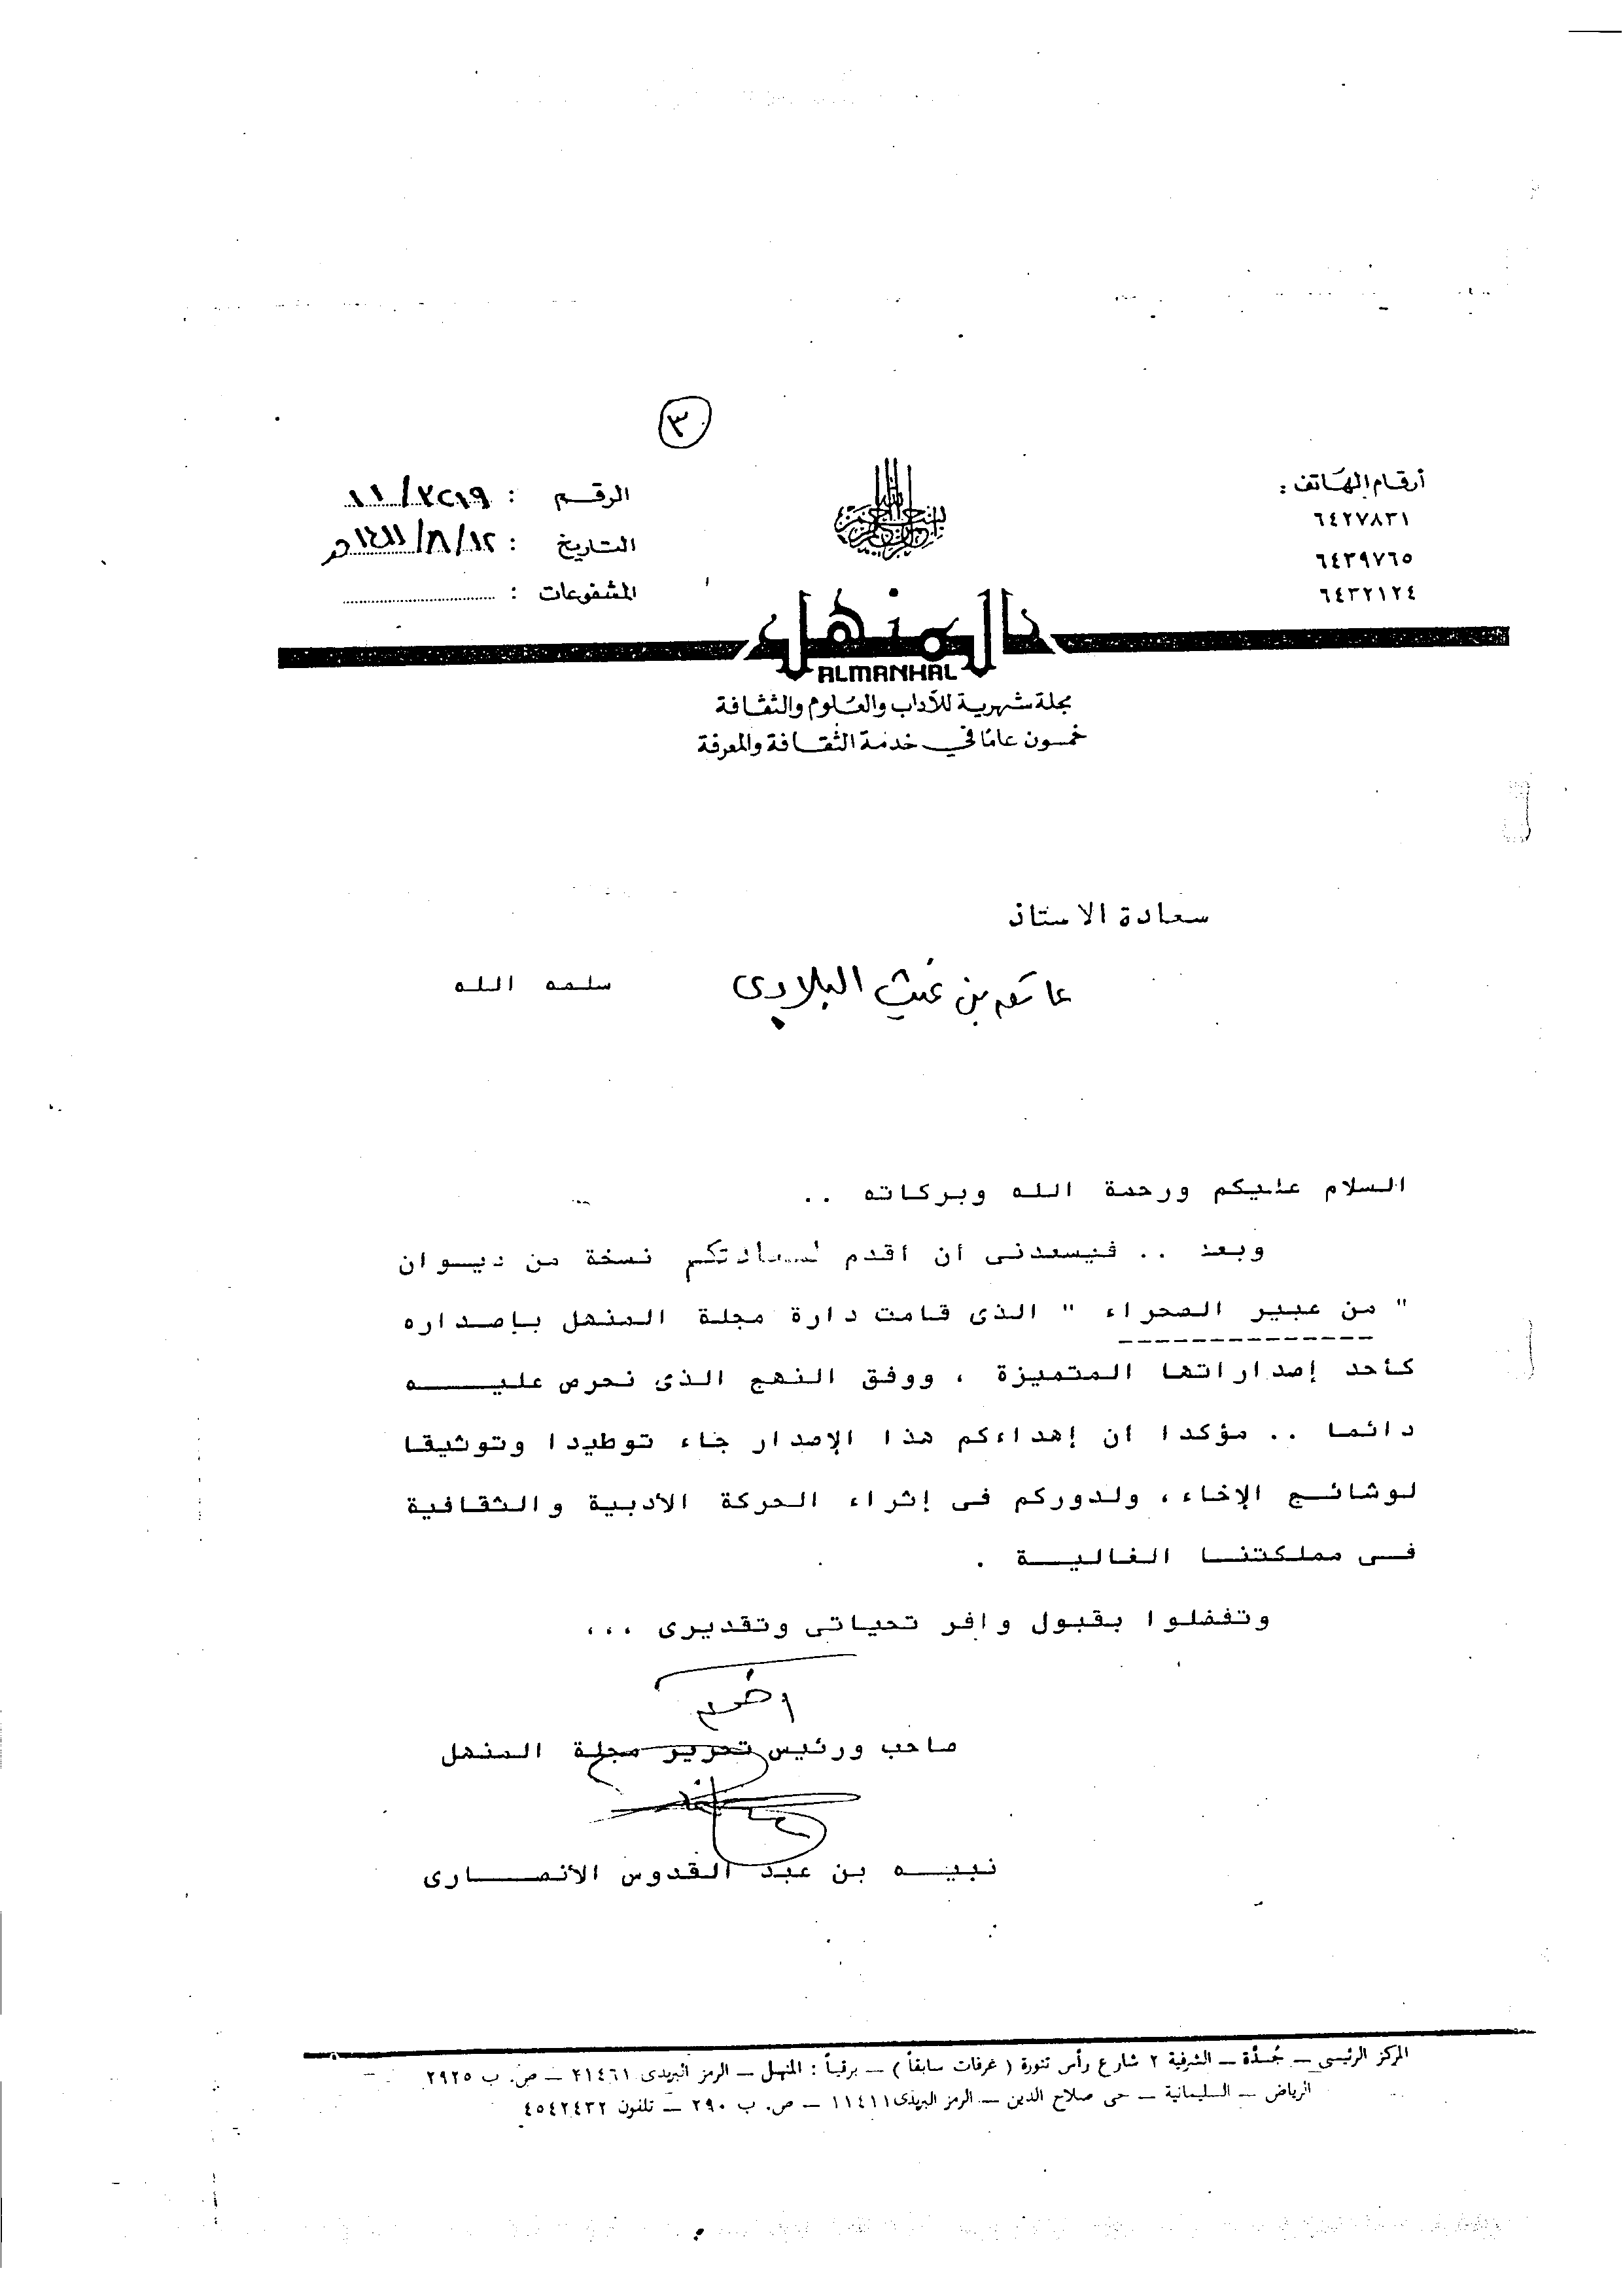 ٣
أرقام الهاتف :
٦٤٢٧٨٣١
٦٤٣٩٧٦٥
٦٤٣٢١٢٤
بسم الله الرحمن الرحيم
الرقم :
التاريخ : ١٤١١/٨/١٢هـ
المشفوعات :
دار المنهل
ALMANHAL
مجلة شهرية للآداب والعلوم والثقافة
خمسون عامًا في خدمة الثقافة والمعرفة
سعادة الاستاذ
عاتق بن غيث البلادى سلمه الله
السلام عليكم ورحمة الله وبركاته ..
وبعد .. فيسعدنى أن أقدم لسعادتكم نسخة من ديوان
" من عبير الصحراء " الذى قامت دارة مجلة المنهل بإصداره
كأحد إصداراتها المتميزة ، ووفق النهج الذى نحرص عليه
دائما .. مؤكدا أن إهداءكم هذا الإصدار جاء توطيدا وتوثيقا
لوشائج الإخاء، ولدوركم فى إثراء الحركة الأدبية والثقافية
فى مملكتنا الغالية .
وتفضلوا بقبول وافر تحياتى وتقديرى ،،،
صاحب ورئيس تحرير مجلة المنهل
نبيه بن عبد القدوس الأنصارى
المركز الرئيسى – جُدَّة – الشرفية ٢ شارع رأس تنورة ( عرفات سابقاً ) – برقياً : المنهل – الرمز البريدى ٢١٤٦١ – ص. ب ٢٩٢٥
الرياض – السليمانية – حى صلاح الدين – الرمز البريدى ١١٤١١ – ص. ب ٢٩٠ – تلفون ٤٥٤٢٤٣٢